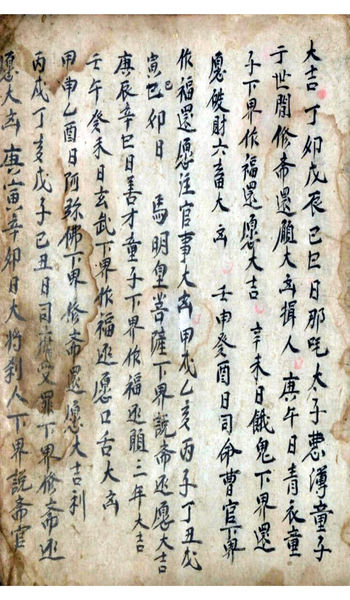 大吉 丁卯戊辰己巳日那吒太子惠薄童子
于世間修斋還願大凶損人 庚午日青衣童
子下界作福還愿大吉 辛未日餓鬼下界還
愿破財六畜大凶 壬申癸酉日司命曹官下界
作福還愿注官事大凶甲戌乙亥丙子丁丑戊
寅己卯日 馬明皇菩薩下界説斋还愿大吉
庚辰辛巳日善才童子下界作福还願三年大吉
壬午癸未日玄武下界作福还愿口舌大凶
甲申乙酉日阿弥佛下界修斋還愿大吉利
丙戌丁亥戊子己丑日司受罪下界修斋还
愿大凶 庚寅辛卯日大將刹人下界説斋官